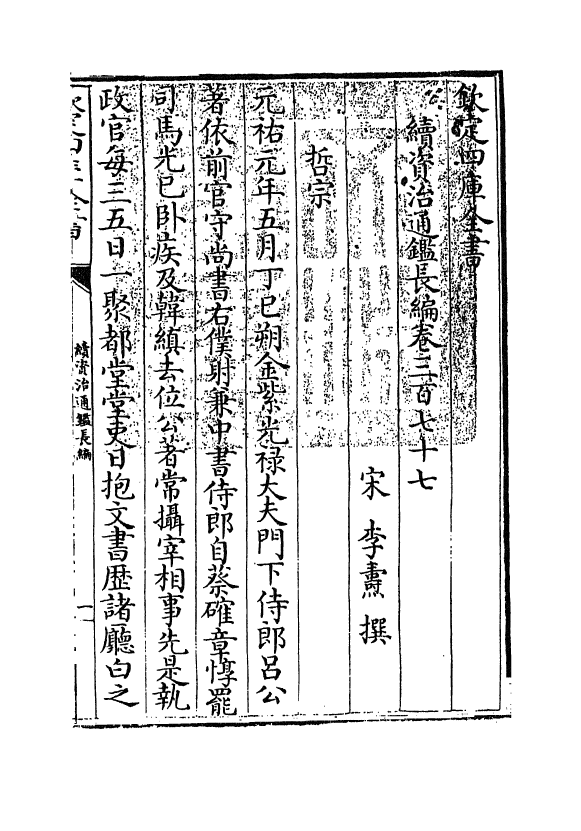 欽定四庫全書
續資治通鑑長編卷三百七十七
宋 李燾 撰
哲宗
元祐元年五月丁巳朔金紫光祿大夫門下侍郎呂公
著依前官守尚書右僕射兼中書侍郎自蔡確章惇罷
司馬光已卧疾及韓縝去位公著常攝宰相事先是執
政官每三五日一聚都堂堂吏日抱文書歴諸廳白之
續資治通鑑長編
一